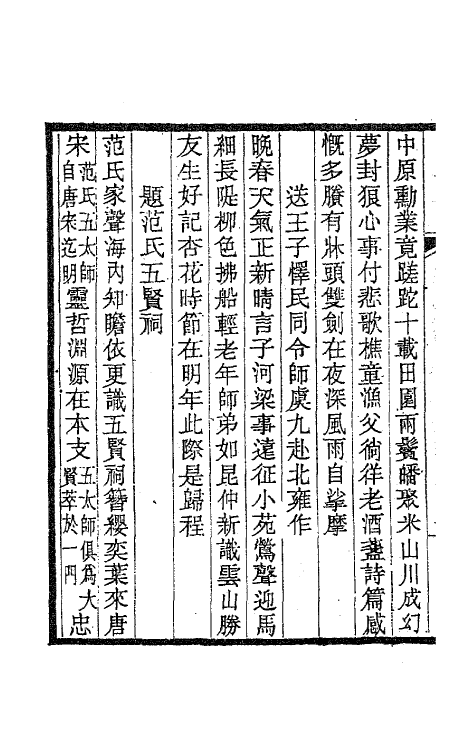 中原勳業竟蹉跎十載田園兩鬢皤聚米山川成幻
夢封狼心事付悲歌樵童漁父徜徉老酒盞詩篇感
慨多賸有牀頭雙劍在夜深風雨自挲摩
送王子懌民同令師虞九赴北雍作
晚春天氣正新晴言子河梁事遠征小苑鶯聲迎馬
細長隄柳色拂船輕老年師弟如昆仲新識雲山勝
友生好記杏花時節在明年此際是歸程
題范氏五賢祠
范氏家聲海內知瞻依更識五賢祠簪纓奕葉來唐
宋范氏五太師自唐來迄明靈哲淵源在本支五太師俱為大賢萃於一門忠